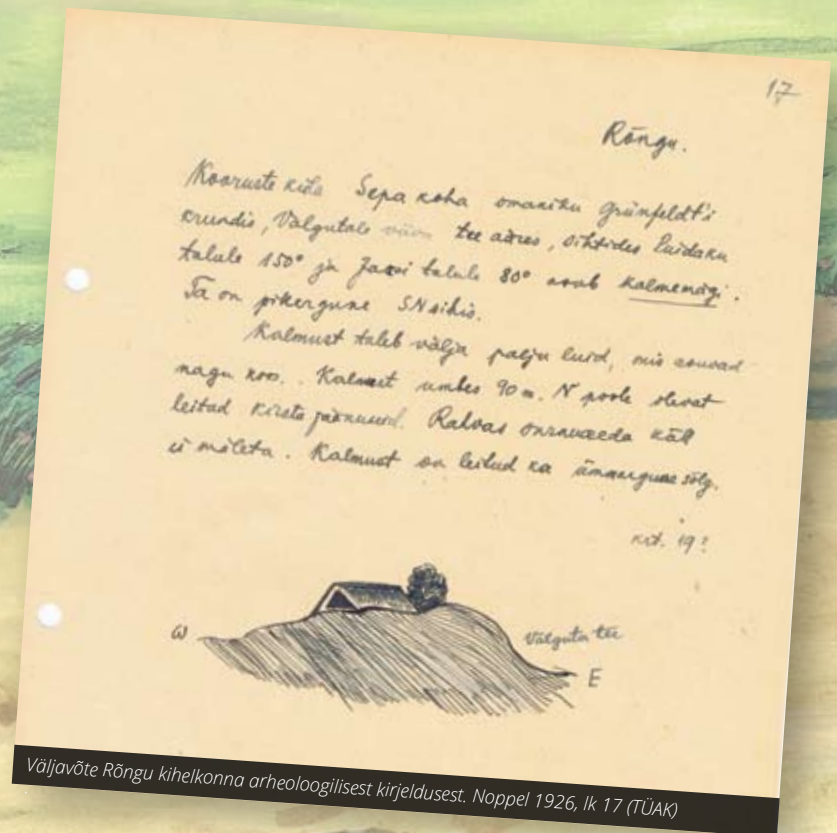 17
Rõngu.
Kooruste küla Sepa koha omaniku Grünfeldt'i
krundis, Valgutale viiva tee ääres, sihtides Luidaku
talule 150° ja Jaani talule 80° asub kalmemägi.
Ta on pikergune SN sihis.
Kalmust tuleb välja palju luid, mis asuvad
nagu koos. Kalmest umbes 90 m. N poole olevat
leitud kirstu jäänuseid. Rahvas
ei mäleta. Kalmust on leitud ka ümmargune sõlg.
19?
W
Valguta tee
E
Väljavõte Rõngu kihelkonna arheoloogilisest kirjeldusest. Noppel 1926, lk 17 (TÜAK)